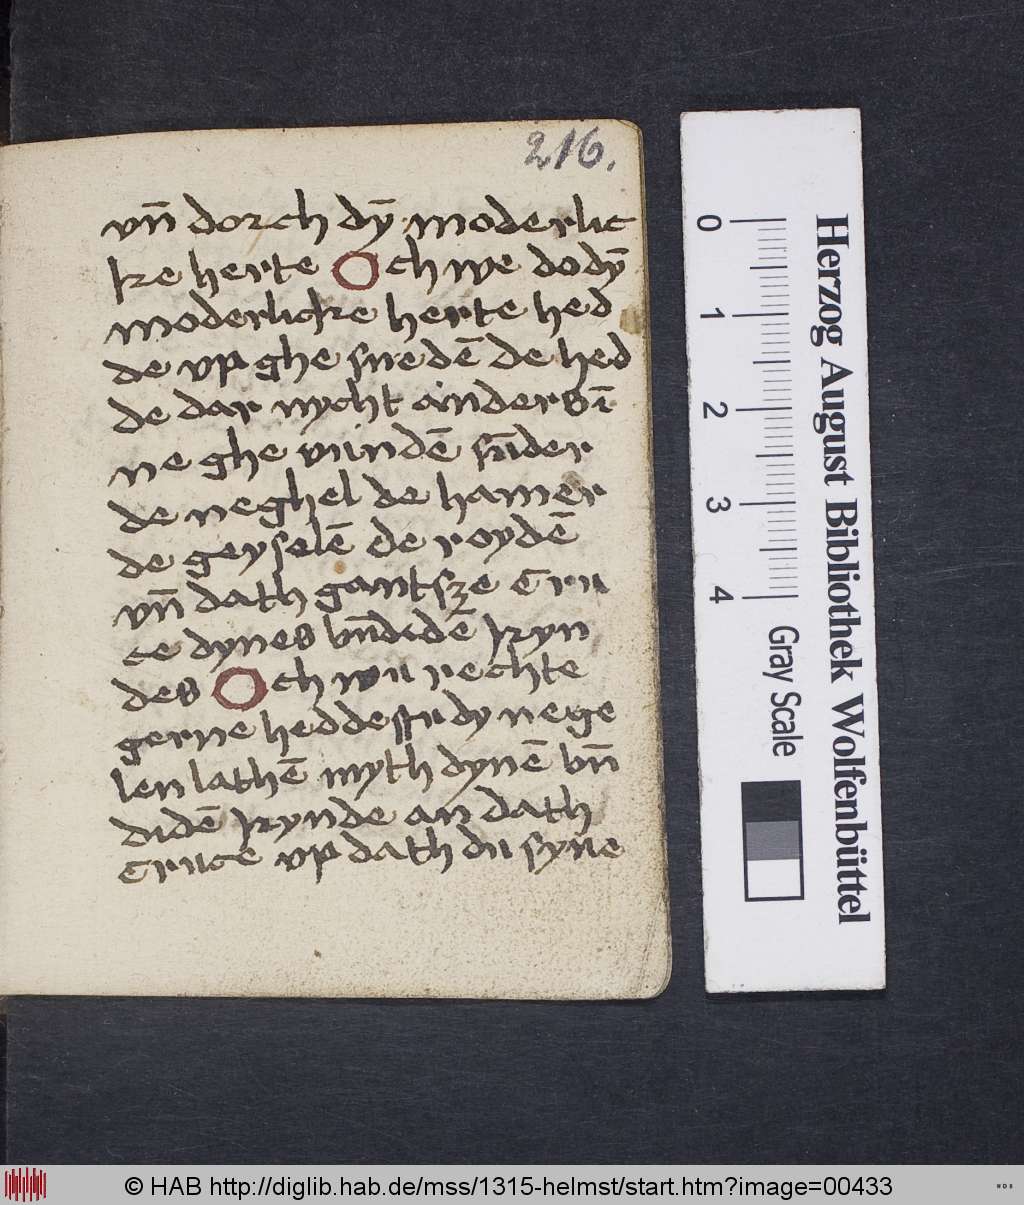 216.
vn̄ dorch dȳ moderlic
ke herte Och we do dȳ
moderlicke herte hed
de vp ghe sneden̄ de hed
de dar nycht anders ī
ne ghe vunden̄ sūder
de neghel de hamer
de geyselē de roydē
vn̄ dath gantsze Cru
ce dynes bn̄didē kyn
des Och wu rechte
gerne heddestu dy nege
len lathē myth dynē bn̄
didē kynde an dath
Cruce vp dath du syne
Herzog August Bibliothek Wolfenbüttel
0 1 2 3 4
Gray Scale
© HAB http://diglib.hab.de/mss/1315-helmst/start.htm?image=00433